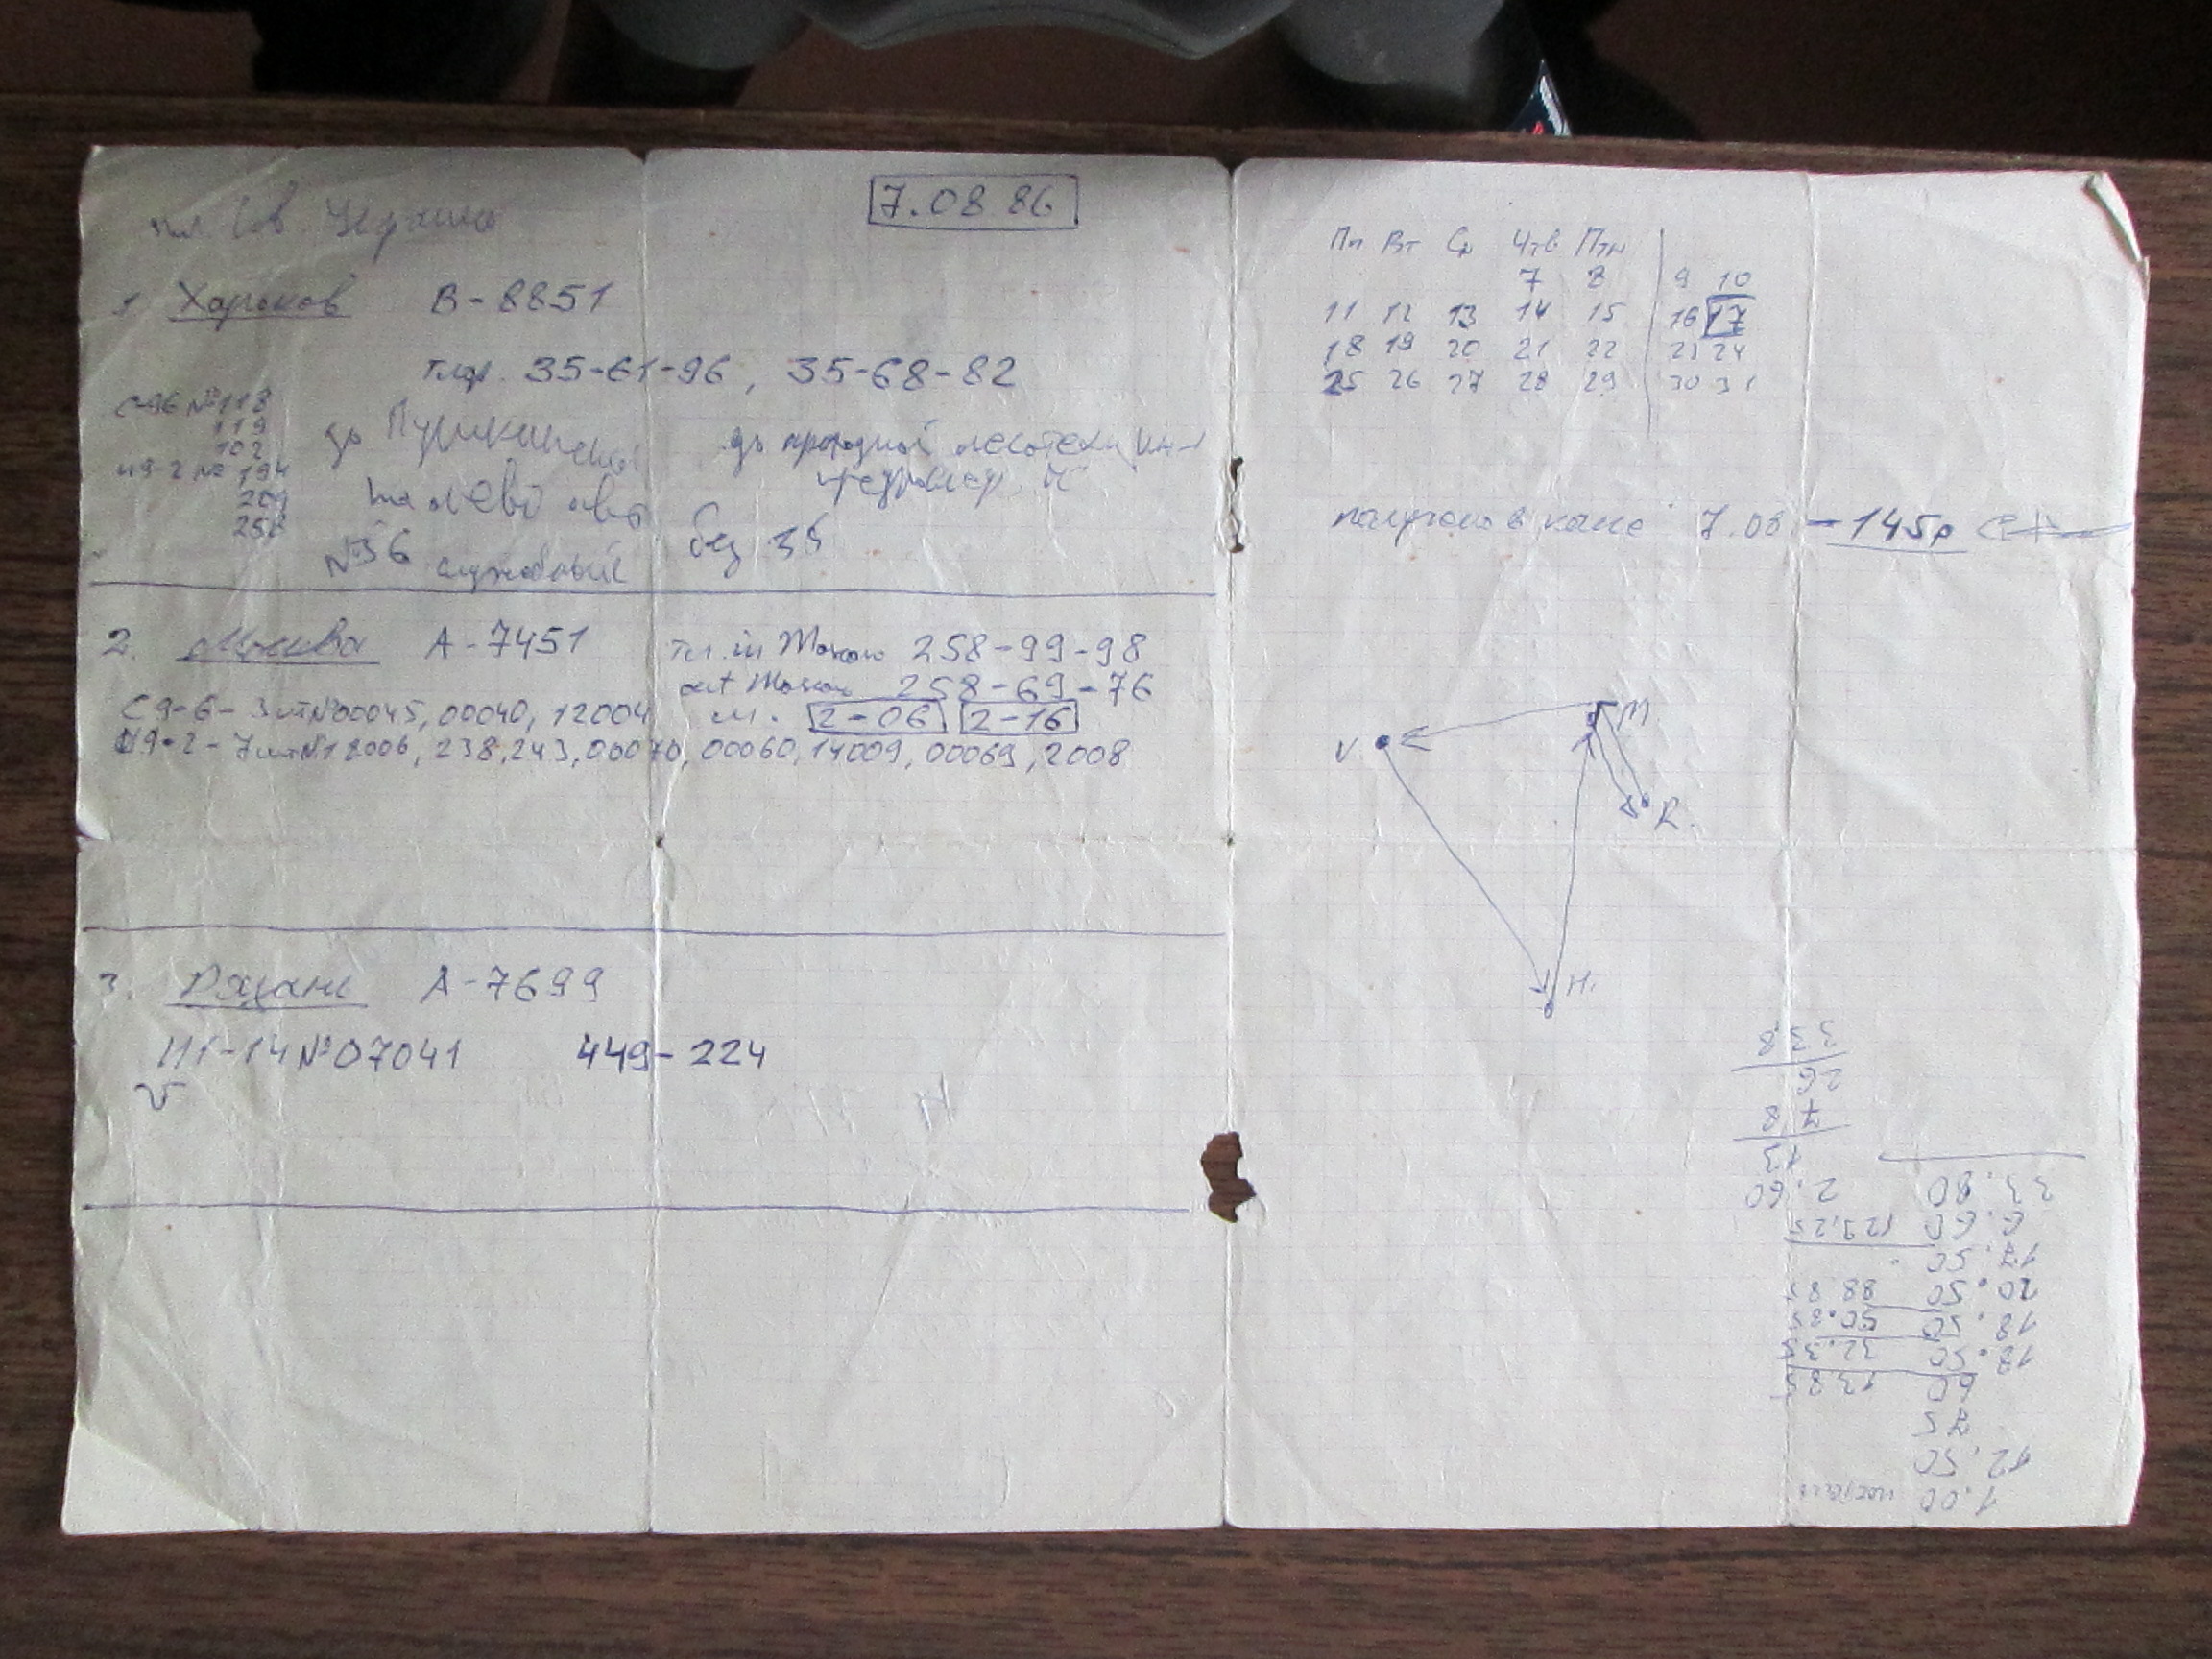 7.08 86
пл. Сов. Украины
1. Харьков В-8851
тлф. 35-61-96, 35-68-82
С9-6 №118
119
102
И9-2 № 194
209
258
до Пушкинской
налево авт
№36 служебный
до проходной лесотехн.
без 38
2. Москва А-7451
тел. in Moscow 258-99-98
out Moscow 258-69-76
м. 2-06 2-16
С9-6-3шт№00045, 00040, 12004
И9-2-7шт№18006, 238, 243, 00070, 00060, 14009, 00069, 2008
3. Рязань А-7699
И1-14№07041 449-224
Пн Вт Ср Чтв Птн
7 8 9 10
11 12 13 14 15 16 17
18 19 20 21 22 23 24
25 26 27 28 29 30 31
получено в кассе 7.08. - 145р
M
V
R.
H.
1.00
12.50
75
60 13 85
18.50 32.35
18.50 50.85
20.50 88 85
17.50
6.60 129,25
33.80 2.60
13
7 8
26
33 8